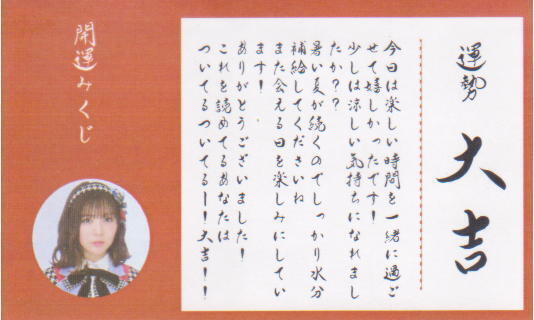 運勢 大吉
今日は楽しい時間を一緒に過ご
せて嬉しかったです！
少しは涼しい気持ちになれまし
たか？？
暑い夏が続くのでしっかり水分
補給してくださいね
また会える日を楽しみにしてい
ます！
ありがとうございました！
これを読めてるあなたは
ついてるついてるー！大吉！！
開運みくじ